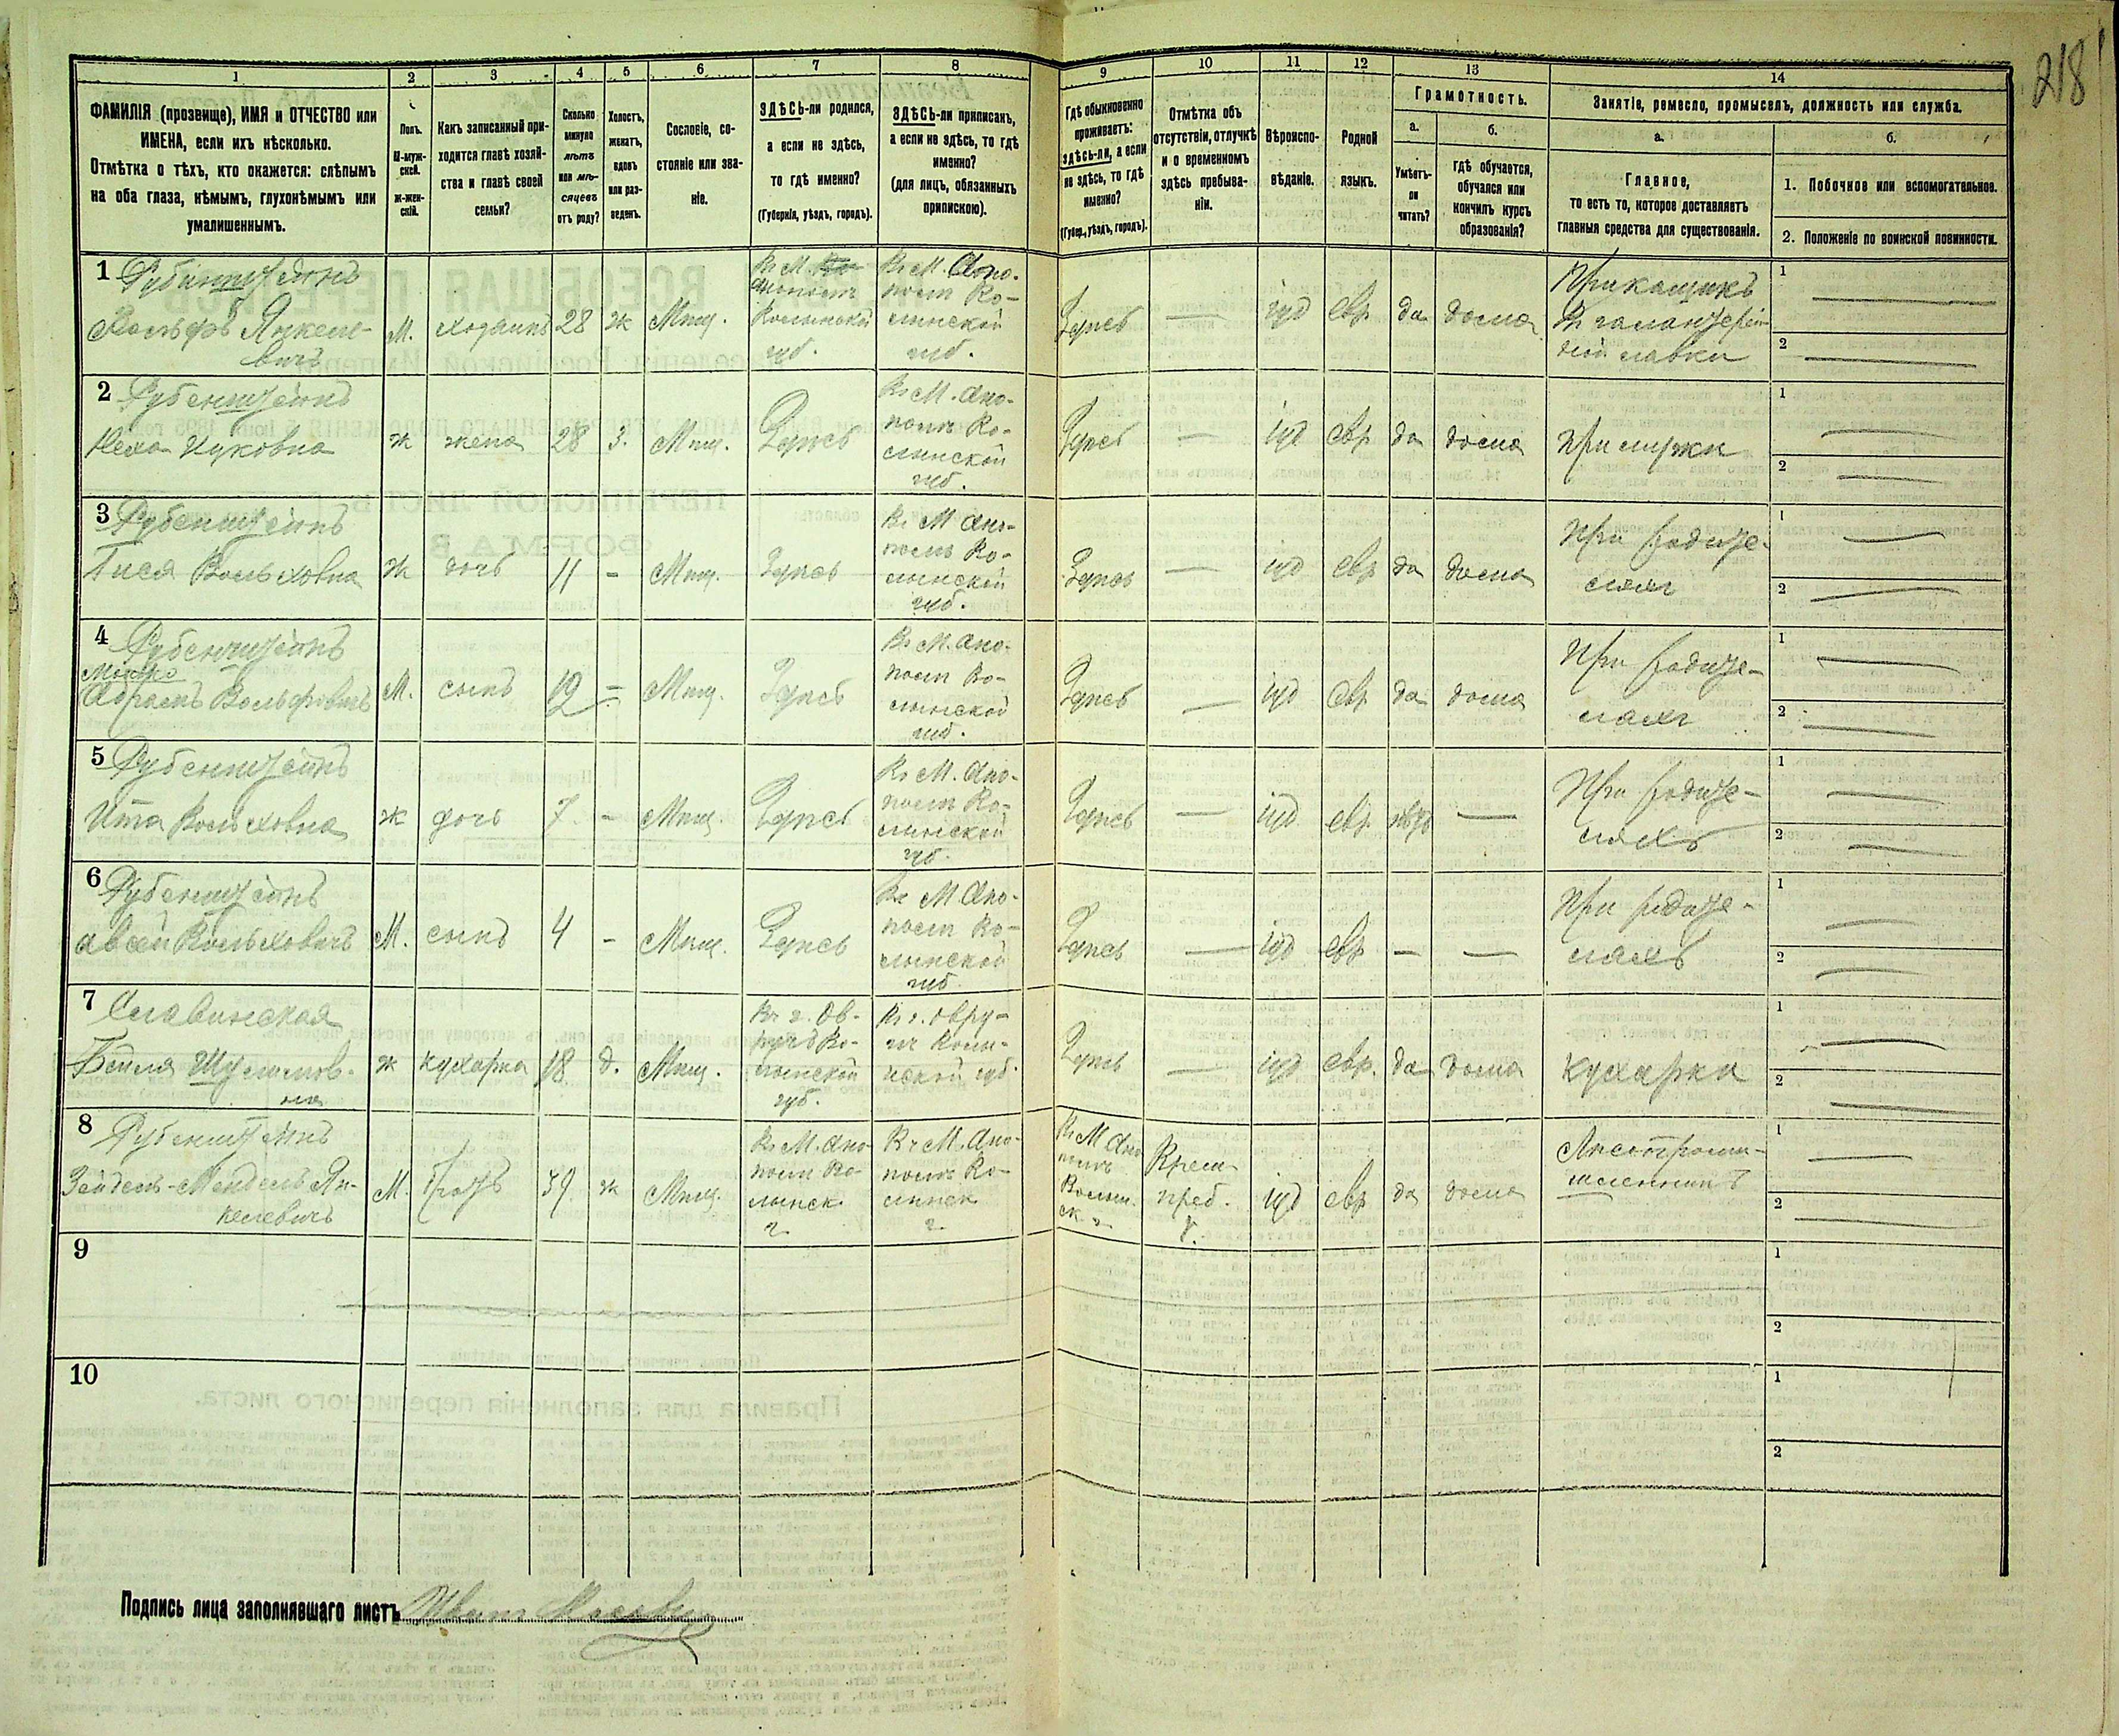 218
1 2 3 4 5 6 7 8 9 10 11 12 13 14
ФАМИЛІЯ (прозвище), ИМЯ и ОТЧЕСТВО или
ИМЕНА, если ихъ нѣсколько.
Отмѣтка о тѣхъ, кто окажется: слѣпымъ
на оба глаза, нѣмымъ, глухонѣмымъ или
умалишеннымъ.
Полъ.
М-муж-
ской.
ж-жен-
скій.
Какъ записанный при-
ходится главѣ хозяй-
ства и главѣ своей
семьи?
Сколько
минуло
лѣтъ
или мѣ-
сяцевъ
отъ роду?
Холостъ,
женатъ,
вдовъ
или раз-
веденъ.
Сословіе, со-
стояніе или зва-
ніе.
ЗДѢСЬ-ли родился,
а если не здѣсь,
то гдѣ именно?
(Губернія, уѣздъ, городъ).
ЗДѢСЬ-ли приписанъ,
а если не здѣсь, то гдѣ
именно?
(для лицъ, обязанныхъ
припискою).
Гдѣ обыкновенно
проживаетъ:
здѣсь-ли, а если
не здѣсь, то гдѣ
именно?
(Губер., уѣздъ, городъ).
Отмѣтка объ
отсутствіи, отлучкѣ
и о временномъ
здѣсь пребыва-
ніи.
Вѣроиспо-
вѣданіе.
Родной
языкъ.
Грамотность.
а.
Умѣетъ-
ли
читать?
б.
гдѣ обучается,
обучался или
кончилъ курсъ
образованія?
Занятіе, ремесло, промыселъ, должность или служба.
а.
Главное,
то есть то, которое доставляетъ
главныя средства для существованія.
б.
1. Побочное или вспомогательное.
2. Положеніе по воинской повинности.
1 Рубинштейнъ
Вольфъ Янкеле-
вичъ
М. хозяинъ 28 ж Мѣщ.
Въ М.
Анополь
Волынской
губ.
Въ М. Ано-
поль Во-
лынской
губ.
Здѣсь — іуд евр. да дома
Прикащикъ
въ галантерей-
ной лавки
1
2
2 Рубенштейнъ
Неха Ицковна
ж жена 28 З. Мѣщ. Здѣсь
Въ М. Ано-
поль Во-
лынской
губ.
Здѣсь — іуд евр. да дома при мужи
1
2
3 Рубенштейнъ
Гися Вольховна
ж дочь 11 - Мѣщ. Здѣсь
Въ М Ано-
поль Во-
лынской
губ.
Здѣсь — іуд евр да дома
При родите-
лялъ
1
2
4 Рубенштейнъ
Мошко
Абрамъ Вольфовичъ
М. сынъ 19 = Мѣщ. Здѣсь
Въ М. Ано-
поль Во-
лынской
губ.
Здѣсь — іуд евр. да дома
При родите-
ляхъ
1
2
5 Рубенштейнъ
Ита Вольховна
ж дочь 7 - Мѣщ. Здѣсь
Въ М. Ано-
поль Во-
лынской
губ.
Здѣсь — іуд евр. нѣтъ —
При родите-
ляхъ
1
2
6 Рубенштейнъ
Вольховичъ
М. сынъ 4 - Мѣщ. Здѣсь
Въ М Ано-
поль Во-
лынской
губ
Здѣсь — іуд евр — —
При родите-
ляхъ
1
2
7 Славинская
Бейля Шулимов-
на
ж кухарка 18 д. Мѣщ.
Въ г. Ов-
ручъ Во-
лынской
губ.
Въ г. Овру-
чъ Волын-
ской губ.
Здѣсь — іуд евр. да дома кухарка
1
2
8 Рубенштейнъ
Зейдель-Мендель Ян-
келевичъ
М. братъ 39 ж Мѣщ.
Въ М. Ано-
поль Во-
лынск.
г.
Въ М. Ано-
поль Во-
лынск
г.
Въ М Ано
поль
Волын.
ск г
Врем
преб.
іуд евр да дома
Лесопромы-
шленникъ
1
2
9
1
2
10
1
2
Подпись лица заполнявшаго листъ